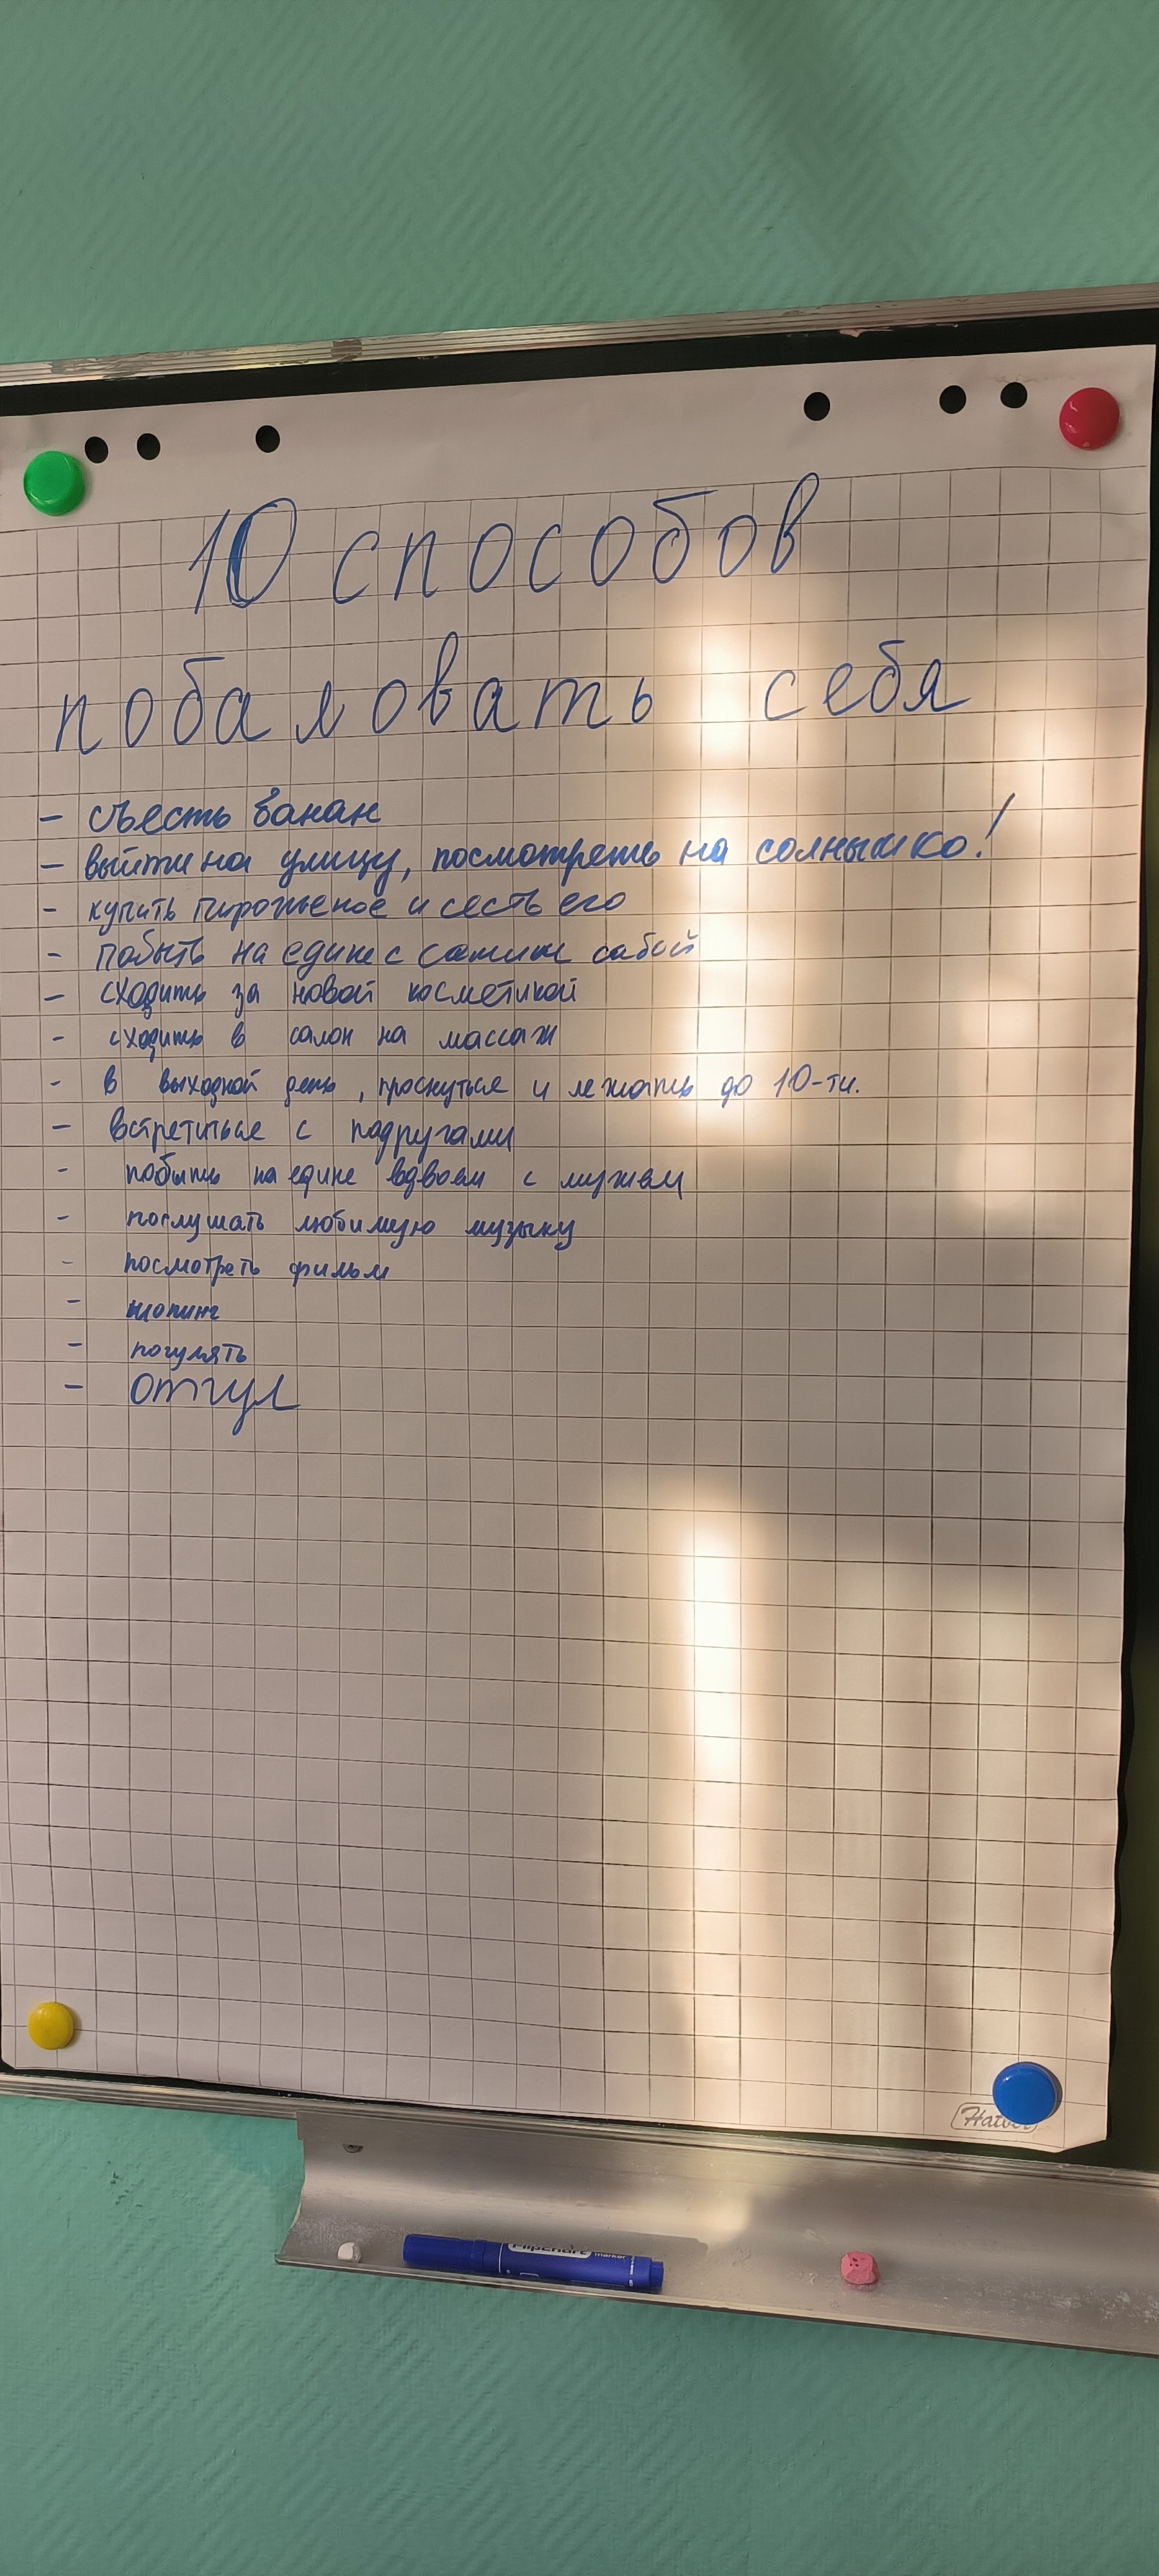 10 способов
побаловать себя
- съесть банан
- выйти на улицу, посмотреть на солнышко!
- купить пирожьеное и сесть его
- побыть на едине с самим сабой
- сходить за новой косметикой
- сходить в салон на массаж
- в выходной день, проснуться и лежать до 10-ти.
- встретиться с подругами
- побыть на едине вдвоем с мужем
- послушать любимую музыку
- посмотреть фильм
- шопинг
- погулять
- отгул
Hatber
Flipchart marker